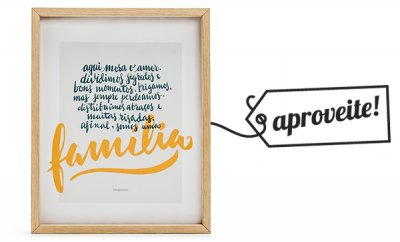 aqui mora o amor.
dividimos segredos e
bons momentos. brigamos,
mas sempre perdoamos.
distribuímos abraços e
muitas risadas,
afinal, somos uma
família
aproveite!